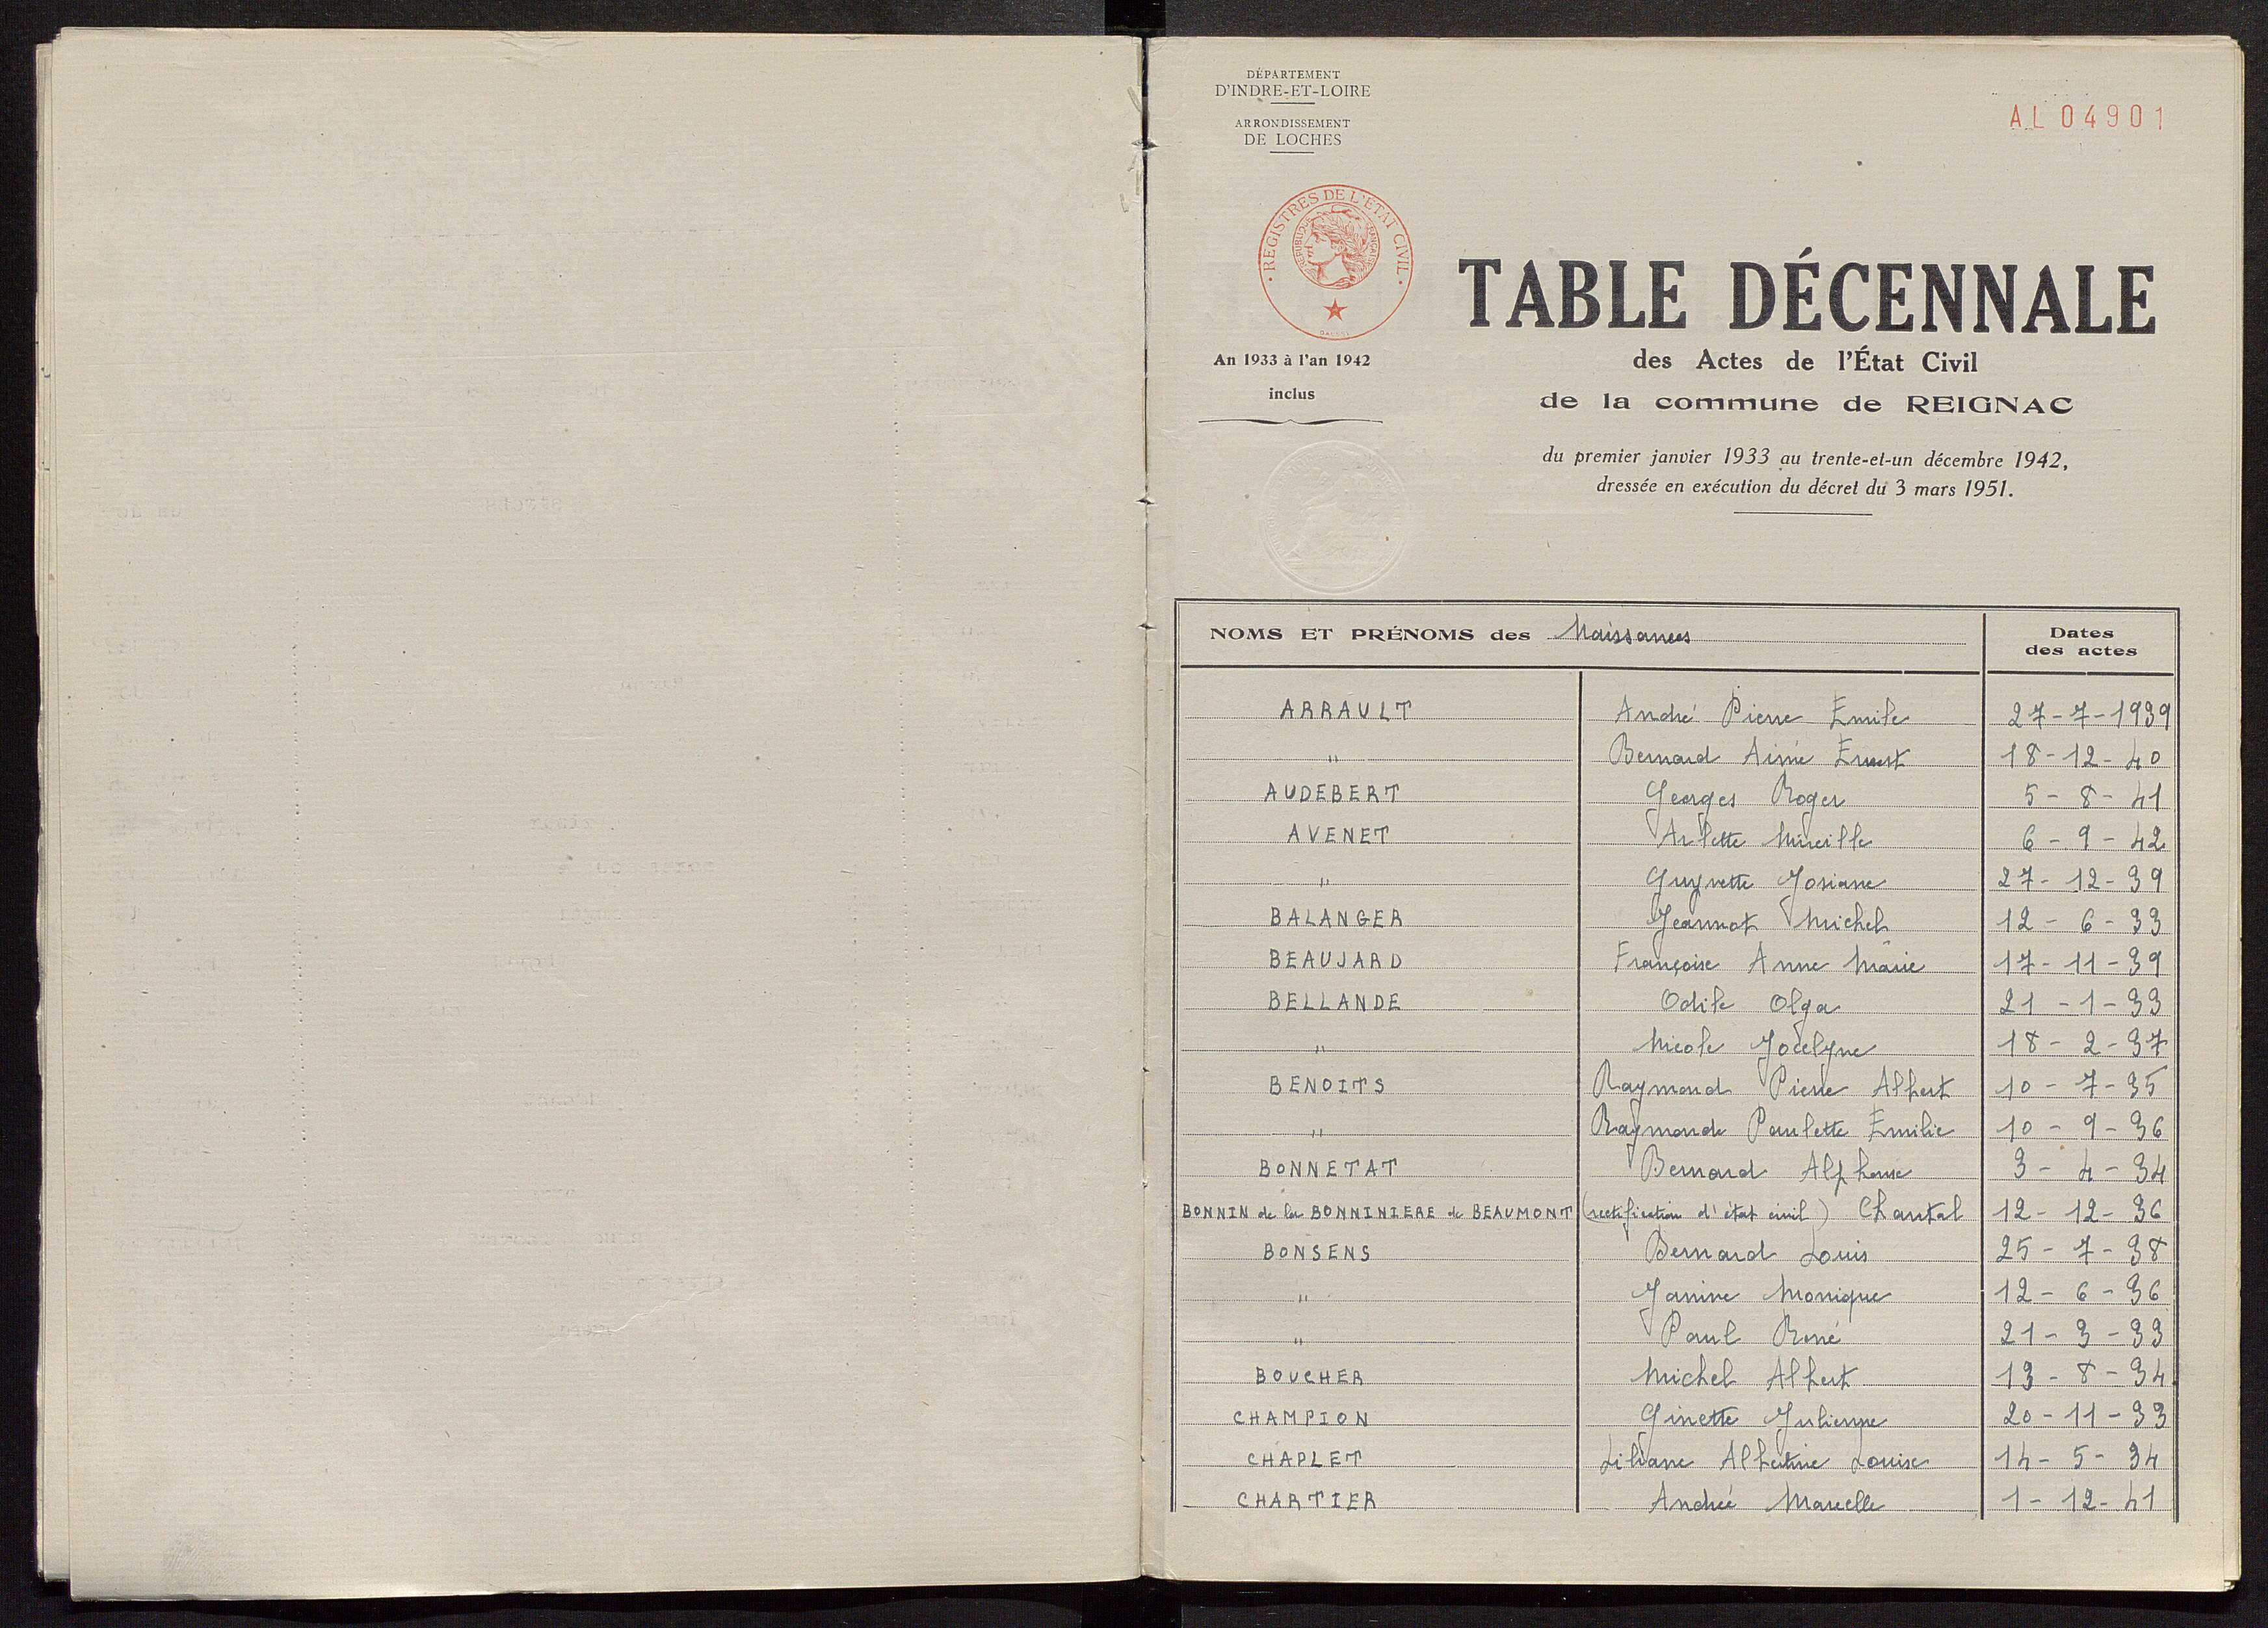 DÉPARTEMENT
D'INDRE-ET-LOIRE
ARRONDISSEMENT
DE LOCHES
AL 04901
REGISTRES DE L'ETAT CIVIL
REPUBLIQUE FRANÇAISE
An 1933 à l'an 1942
inclus
TABLE DÉCENNALE
des Actes de l'État Civil
de la commune de REIGNAC
du premier janvier 1933 au trente-et-un décembre 1942,
dressée en exécution du décret du 3 mars 1951.
NOMS ET PRÉNOMS des Naissances Dates
des actes
ARRAULT André Pierre Emile 27-7-1939
" Bernard Aimé Ernest 18-12-40
AUDEBERT Georges Roger 5-8-41
AVENET Arlette Mireille 6-9-42
" Guynette Josiane 27-12-39
BALANGER Jeannot Michel 12-6-33
BEAUJARD Françoise Anne Marie 17-11-39
BELLANDE Odile Olga 21-1-33
" Nicole Jocelyne 18-2-37
BENOITS Raymond Pierre Albert 10-7-35
" Raymonde Paulette Emilie 10-9-36
BONNETAT Bernard Alphonse 3-4-34
BONNIN de la BONNINIERE de BEAUMONT (rectification d'état civil) Chantal 12-12-36
BONSENS Bernard Louis 25-7-38
" Janine Monique 12-6-36
" Paul René 21-3-33
BOUCHER Michel Albert 13-8-34
CHAMPION Ginette Julienne 20-11-33
CHAPLET Liliane Albertine Louise 14-5-34
CHARTIER Andrée Marcelle 1-12-41